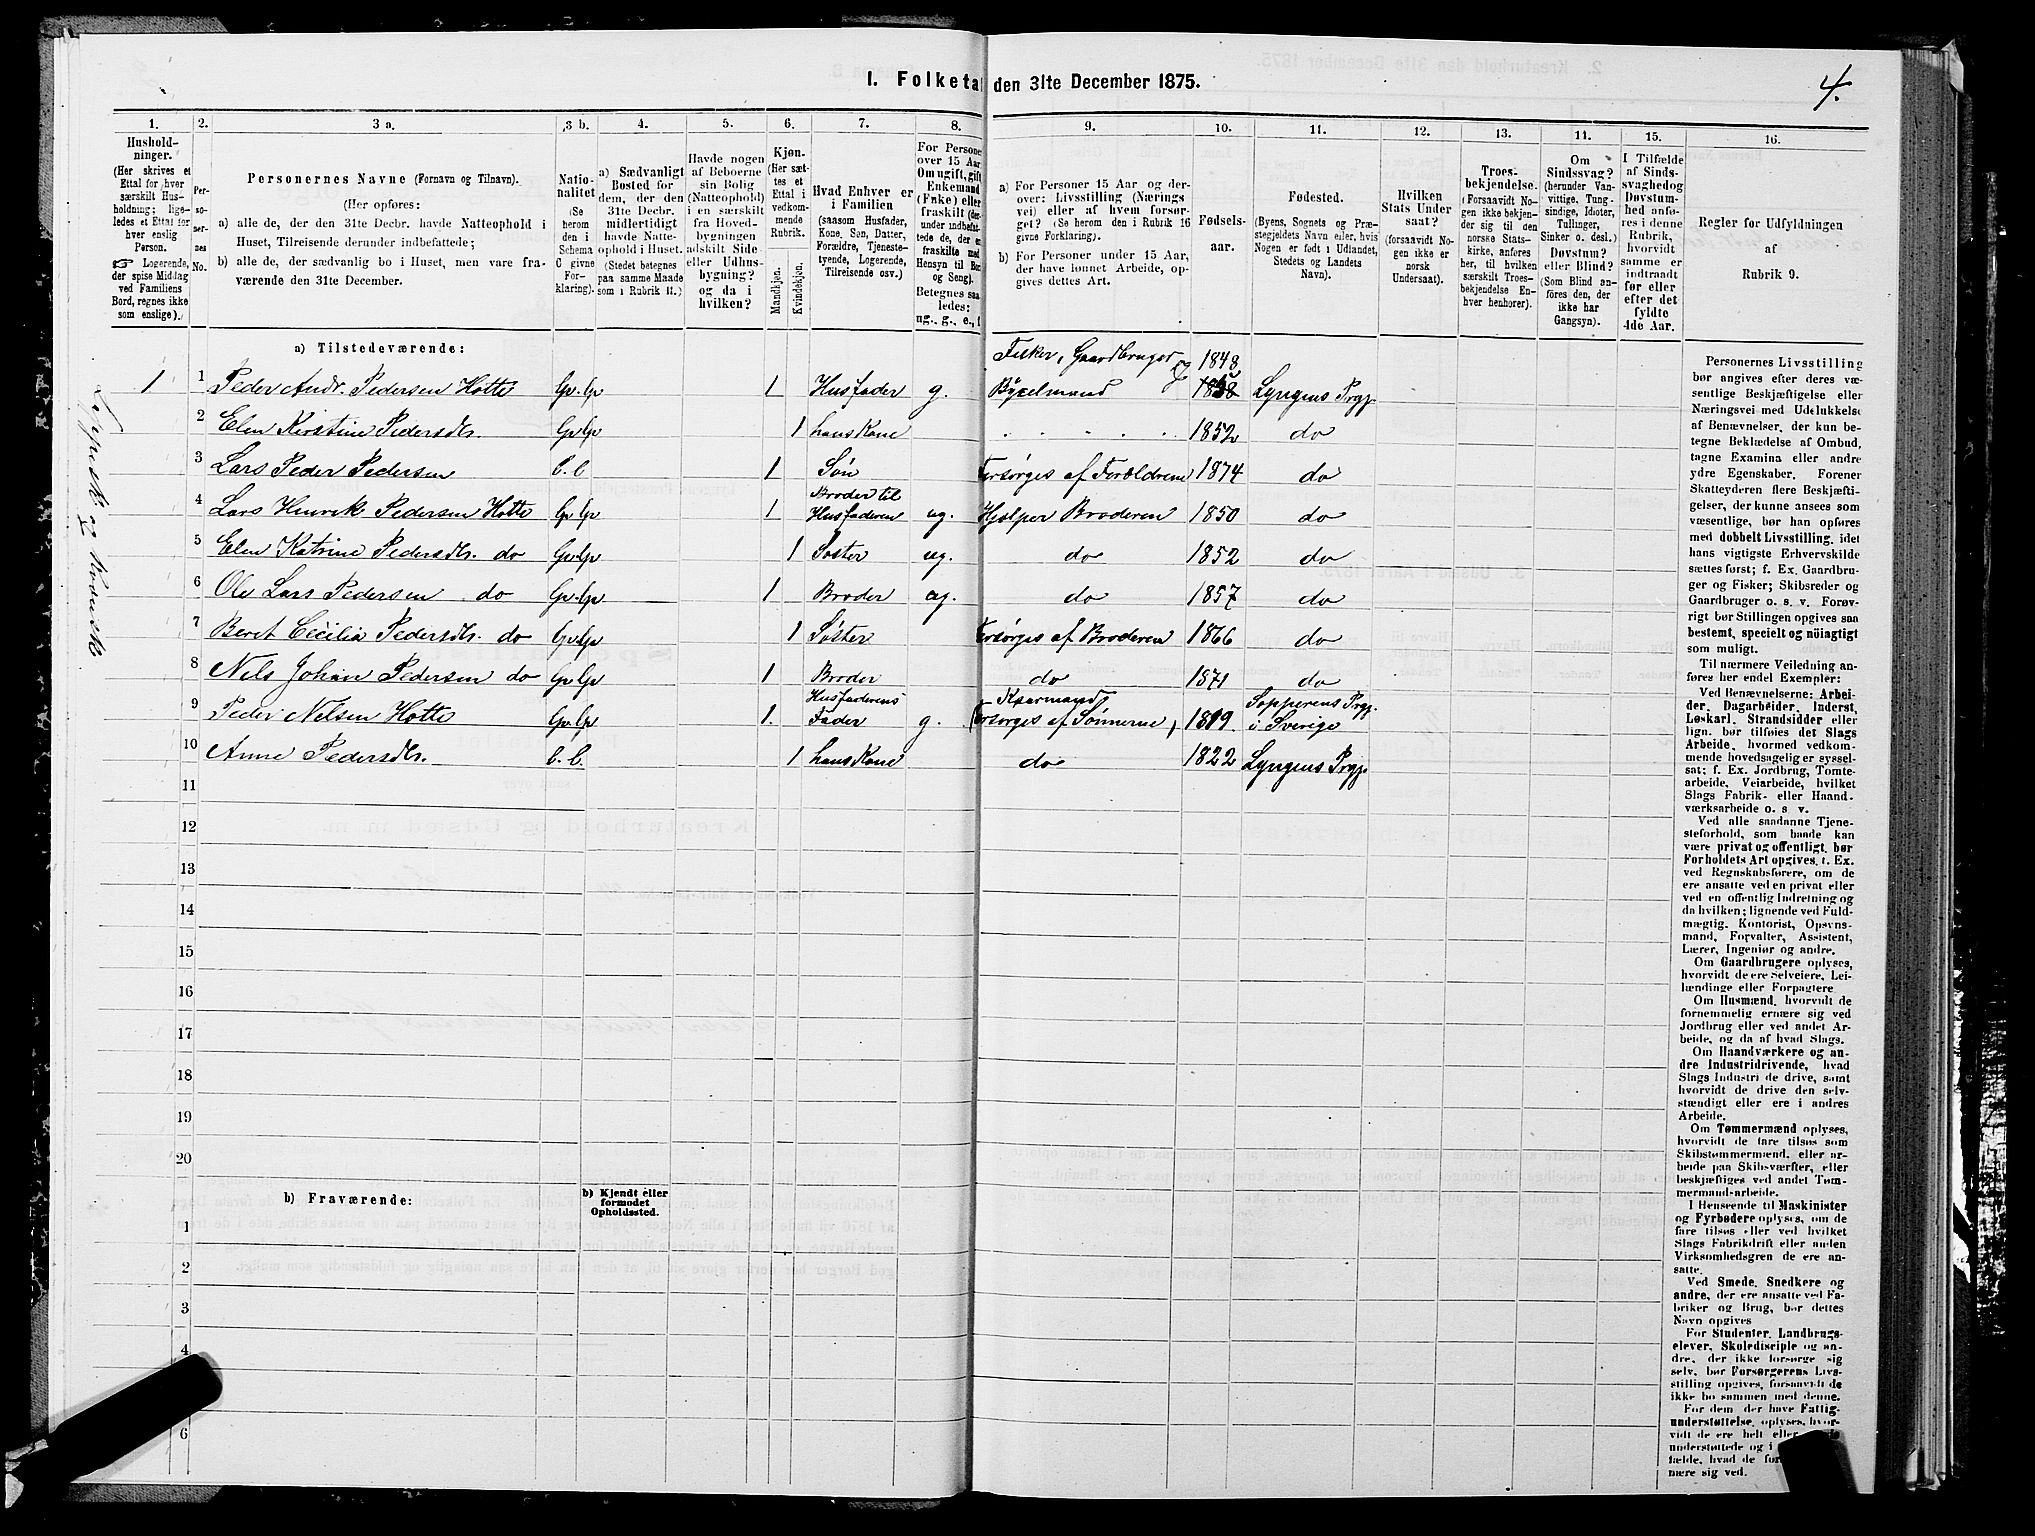 4.
I. Folketal den 31te December 1875.
1. 2. 3 a. 3 b. 4. 5. 6. 7. 8. 9. 10. 11. 12. 13. 11. 15. 16.
Hushold-
ninger.
(Her skrives et
Ettal for hver
særskilt Hus-
holdning; lige-
ledes et Ettal for
hver enslig
Person.
☞ Logerende,
der spise Middag
ved Familiens
Bord, regnes ikke
som enslige).
Per-
so-
ner-
nes
No.
Personernes Navne (Fornavn og Tilnavn).
(Her opføres:
a) alle de, der den 31te Decbr. havde Natteophold i
Huset, Tilreisende derunder indbefattede;
b) alle de, der sædvanlig bo i Huset, men vare fra-
værende den 31te December.
Natio-
nalitet
(Se
herom
den i
Schema
O givne
For-
klaring).
a) Sædvanligt
Bosted for
dem, der den
31te Decbr.
midlertidigt
havde Natte-
ophold i Huset.
(Stedet betegnes
paa samme Maade
som i Rubrik 11.)
Havde nogen
af Beboerne
sin Bolig
(Natteophold)
i en særskilt
fra Hoved-
bygningen
adskilt Side-
eller Udhus-
bygning?
og da i
hvilken?
Kjøn.
(Her sæt-
tes et
Ettal i
vedkom-
mende
Rubrik.
Mandkjøn.
Kvindekjøn.
Hvad Enhver er
i Familien
(saasom Husfader,
Kone, Søn, Datter,
Forældre, Tjeneste-
tyende, Logerende,
Tilreisende osv.)
For Personer
over 15 Aar
Om ugift, gift,
Enkemand
(Enke) eller
fraskilt (der-
under indbefat-
tede de, der ere
fraskilte med
Hensyn til Bord
og Seng).
Betegnes saa-
ledes:
ug., g., e., f
a) For Personer 15 Aar og der-
over: Livsstilling (Nærings
vei) eller af hvem forsør-
get? (Se herom den i Rubrik 16
givne Forklaring).
b) For Personer under 15 Aar,
der have lønnet Arbeide, op-
gives dettes Art.
Fødsels-
aar.
Fødested.
(Byens, Sognets og Præ-
stegjeldets Navn eller, hvis
Nogen er født i Udlandet,
Stedets og Landets
Navn).
Hvilken
Stats Under
saat?
(forsaavidt No-
gen ikke er
norsk
Undersaat).
Troes-
bekjendelse.
(Forsaavidt No-
gen ikke bekjen-
der sig til den
norske Stats-
kirke, anføres
her, til hvilken
særskilt Troes-
bekjendelse En-
hver henhører).
Om
Sindssvag?
(herunder Van-
vittige, Tung-
sindige, Idioter,
Tullinger,
Sinker o. desl.)
Døvstum?
eller Blind?
(Som Blind an-
føres den, der
ikke har
Gangsyn).
I Tilfælde
af Sinds-
svaghed og
Døvstum-
hed anfø-
res i denne
Rubrik,
hvorvidt
samme er
indtraadt
før eller
efter det
fyldte
4de Aar.
Regler for Udfyldningen
af
Rubrik 9.
a) Tilstedeværende:
Fisker, Gaardbruger og 1848
1 1 Peder Andr. Pedersen Hotte Gv. Gv 1 Husfader g. Byxelmand Lyngens Prgj.
2 Elen Kirstine Pedersdtr. Gv Gv 1 hans Kone 1852 do
3 Lars Peder Pedersen b. b 1 Søn Forsørges af Forældrene 1874 do
4 Lars Henrik Pedersen Hotte Gv Gv 1 Broder til Husfaderen ug. Hjælper Broderen 1850 do
5 Elen Katrine Pedersdtr. do Gv. Gv 1 Søster ug. do 1852 do
6 Ole Lars Pedersen do Gv. Gv 1 Broder ug. do 1857 do
7 Beret Cecilia Pedersdtr. do Gv Gv 1 Søster Forsørges af Broderen 1866 do
8 Nels Johan Pedersen do Gv Gv 1 Broder do 1871 do
9 Peder Nelsen Hotte Gv. Gv 1. Husfaderens Fader g. Kaarmand, (Forsørges af Sønnerne) 1819. Sopperens Prgj. i Sverige
10 Anne Pedersdtr. b. b. 1 hans Kone do 1822 Lyngens Prgj.
11
12
13
14
15
16
17
18
19
20
b) Fraværende:
b) Kjendt eller
formodet
Opholdssted.
1
2
3
4
6
Personernes Livsstilling
bør angives efter deres væ-
sentlige Beskjæftigelse eller
Næringsvei med Udelukkelse
af Benævnelser, der kun be-
tegne Beklædelse af Ombud,
tagne Examina eller andre
ydre Egenskaber. Forener
Skatteyderen flere Beskjæfti-
gelser, der kunne ansees som
væsentlige, bør han opføres
med dobbelt Livsstilling, idet
hans vigtigste Erhvervskilde
sættes først; f. Ex. Gaardbru-
ger og Fisker; Skibsreder og
Gaardbruger o. s. v. Forøv-
rigt bør Stillingen opgives saa
bestemt, specielt og nøiagtigt
som muligt.
Til nærmere Veiledning an-
føres her endel Exempler:
Ved Benævnelserne: Arbei-
der, Dagarbeider, Inderst,
Løskarl, Strandsidder eller
lign. bør tilføies det Slags
Arbeide, hvormed vedkom-
mende hovedsagelig er syssel-
sat; f. Ex. Jordbrug, Tomte-
arbeide, Veiarbeide, hvilket
Slags Fabrik- eller Haand-
værksarbeide o. s. v.
Ved alle saadanne Tjene-
steforhold, som baade kan
være privat og offentligt, bør
Forholdets Art opgives, t. Ex.
ved Regnskabsførere, om de
ere ansatte ved en privat eller
ved en offentlig Indretning og
da hvilken; lignende ved Fuld-
mægtig, Kontorist, Opsyns-
mand, Forvalter, Assistent,
Lærer, Ingeniør og andre.
Om Gaardbrugere oplyses,
hvorvidt de ere Selveiere, Lei-
lændinge eller Forpagtere.
Om Husmænd, hvorvidt de
fornemmelig ernære sig ved
Jordbrug eller ved andet Ar-
beide, og da af hvad Slags.
Om Haandværkere og an-
dre Industridrivende, hvad
Slags Industri de drive, samt
hvorvidt de drive den selv-
stændigt eller ere i andres
Arbeide.
Om Tømmermænd oplyses,
hvorvidt de fare tilsøs som
Skibstømmermænd, eller ar-
beide paa Skibsværfter, eller
beskjæftiges ved andet Tøm-
mermand-arbeide.
I Henseende til Maskinister
og Fyrbødere oplyses, om de
fare tilsøs eller ved hvilket
Slags Fabrikdrift eller anden
Virksomhedsgren de ere an-
satte.
Ved Smede, Snedkere og
andre, der ere ansatte ved Fa-
briker og Brug, bør dettes
Navn opgives
For Studenter, Landbrugs-
elever, Skoledisciple og an-
dre, der ikke forsørge sig
selv, bør Forsørgerens Livs-
stilling opgives, forsaavidt de
ikke bo sammen med denne.
For dem, der have Fattig-
understøttelse, oplyses, hvor-
vidt de ere helt eller
understøttede og i
fælde, hvad de for
nære sig ved.